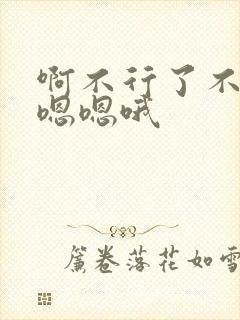 啊不行了不
嗯嗯哦
簾卷落花如雪